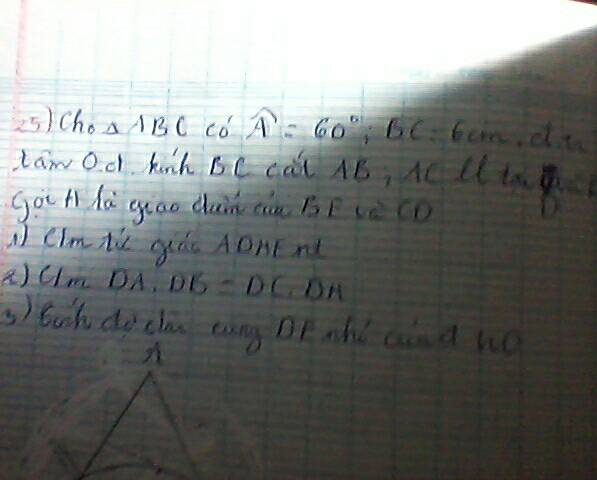 25) Cho △ ABC có Â = 60°; BC = 6cm. đ.tr
tâm O.đ. kính BC cắt AB, AC ll tại D và E
Gọi H là giao điểm của BE và CD
1) C/m tứ giác ADHE nt
2) C/m DA. DB = DC. DH
3) Tính độ dài cung DE nhỏ của đ
A